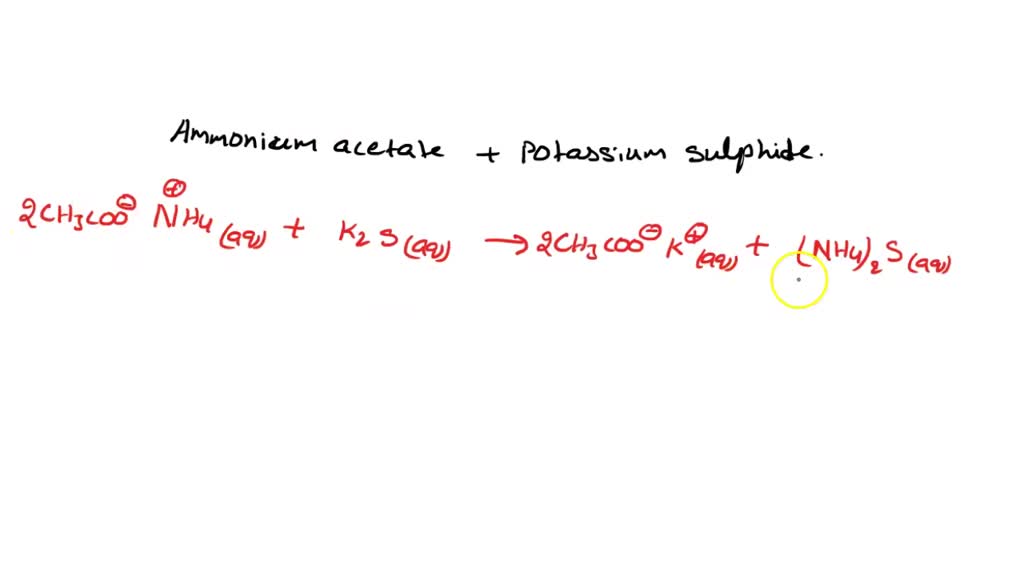 Ammonium acetate + Potassium sulphide.
2CH₃COO⊖ N⊕H₄ (aq) + K₂S (aq) → 2CH₃COO⊖ K⊕ (aq) + (NH₄)₂S (aq)